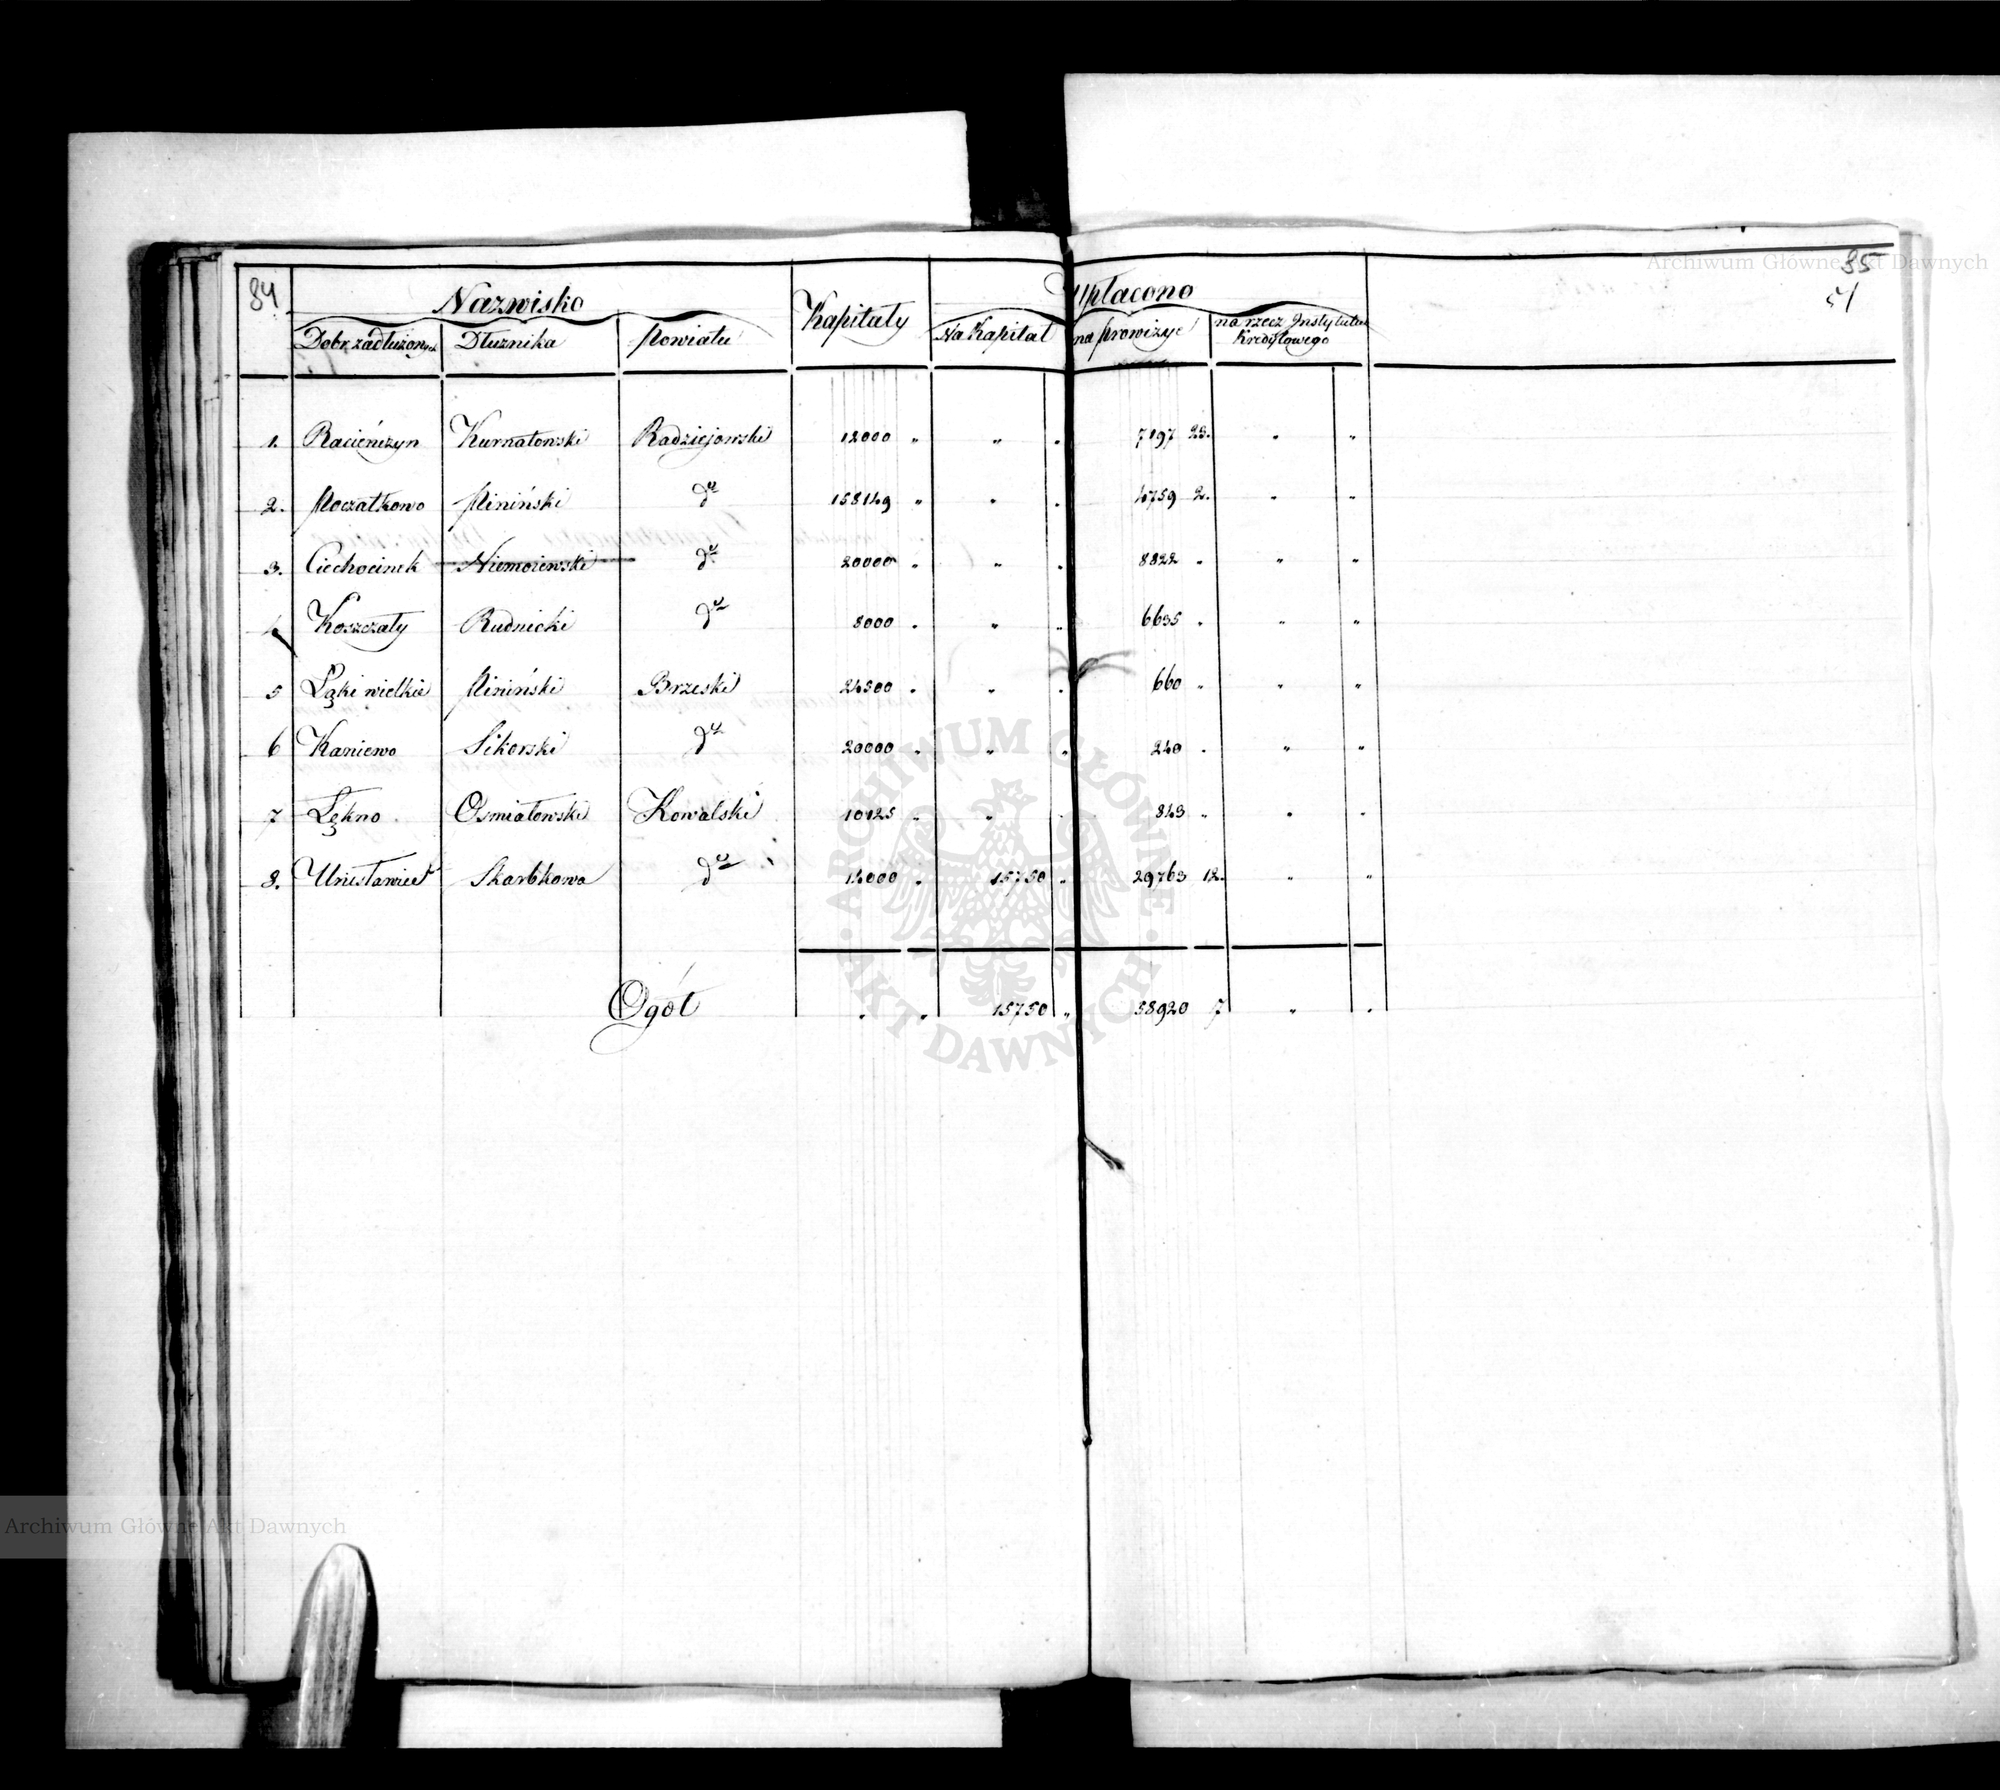 Archiwum Główne Akt Dawnych
84 Nazwisko Kapitały Upłacono 85
51
Dobr zadłużonych Dłużnika Powiatu Na Kapitał na prowizye na rzecz Instytutu Kredytowego
1. Racieńczyn Kurnatowski Radziejowski 12000 " " . 7197 23. " "
2. Poczatkowo Pininński dº 158149 " " . 4759 2. " "
3. Ciechocinek Niemoiewski dº 20000 " " . 8822 . " "
4. Koszczały Rudnicki dº 8000 . " " 6635 . " "
5 Łąki wielkie Pininński Brzeski 24500 . " . 660 " " "
6 Kaniewo Sikorski dº 20000 " " " 240 . " "
7 Łękno Ośmiałowski Kowalski 10125 " " . 843 " " .
8. Skarbkowa dº 14000 . 15750 . 29763 12. " "
Ogół . " 15750 " 58920 7 " .
ARCHIWUM GŁÓWNE AKT DAWNYCH
Archiwum Główne Akt Dawnych